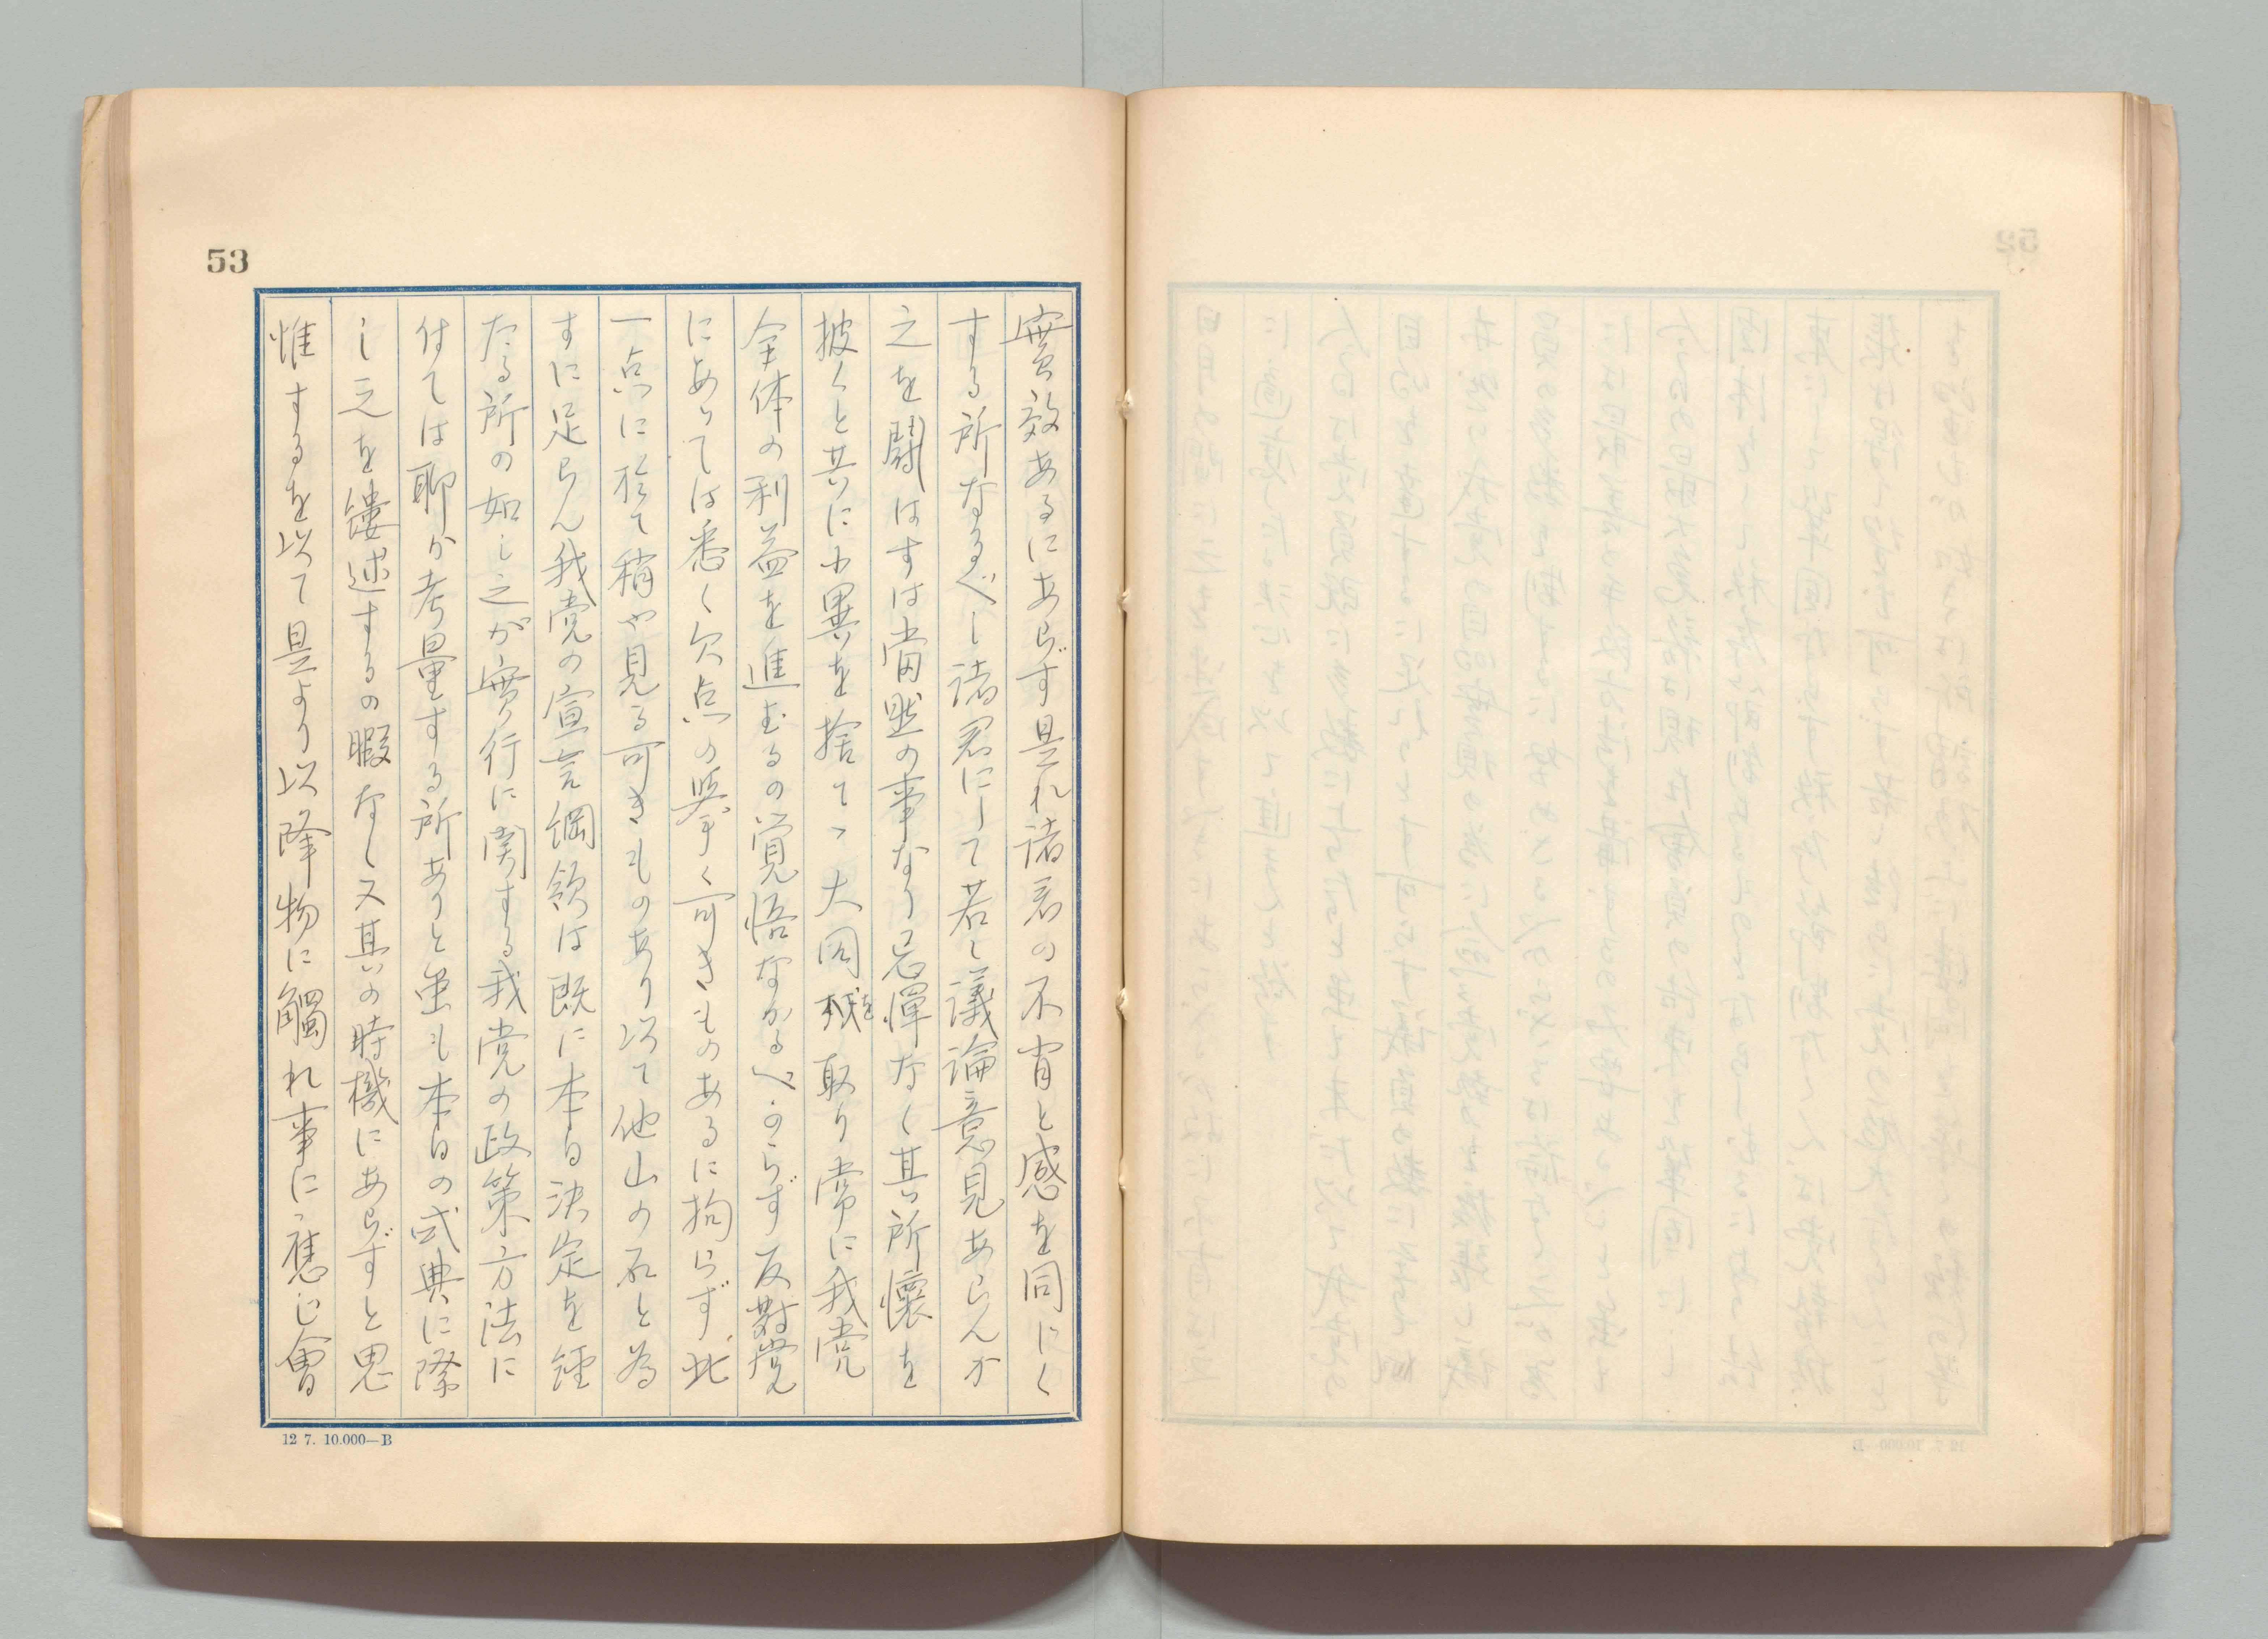 53
實效あるにあらず是れ諸君の不肖と感を同じく
する所なるべし諸君にして若し議論意見あらんか
之を鬪はすは當然の事なり忌憚なく其所懷を
披くと共に小異を捨てゝ大同を取り常に我党
全体の利益を進むるの覚悟なかるべからず反對党
にありては悉く欠点の挙く可きものあるに拘らず此
一点に於て稍や見る可きものあり以て他山の石と為
すに足らん我党の宣言綱領は既に本日決定を経
たる所の如し之が實行に関する我党の政策方法に
付ては聊か考量する所ありと虽も本日の式典に際
し之を縷述するの暇なし又其の時機にあらずと思
惟するを以て是より以降物に觸れ事に應じ會
12 7. 10.000—B